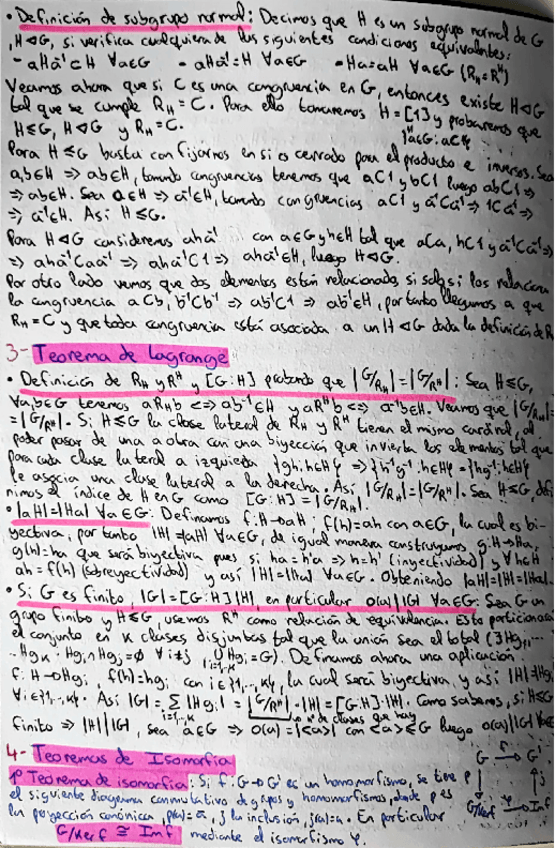 • Definición de subgrupo normal: Decimos que H es un subgrupo normal de G
, H◁G, si verifica cualquiera de las siguientes condiciones equivalentes:
- aHa⁻¹⊂H ∀a∈G - aHa⁻¹=H ∀a∈G - Ha=aH ∀a∈G (R_H=R^H)
Veamos ahora que si C es una congruencia en G, entonces existe H◁G
tal que se cumple R_H=C. Para ello tomaremos H=[1] y probaremos que
H≤G, H◁G y R_H=C. {a∈G: aC1}
Para H≤G basta con fijarnos en si es cerrado para el producto e inversos. Sea
a,b∈H => ab∈H, tomando congruencias tenemos que aC1 y bC1 luego abC1 =>
=> ab∈H. Sea a∈H => a⁻¹∈H, tomando congruencias aC1 y a⁻¹Ca⁻¹ => 1Ca⁻¹ =>
=> a⁻¹∈H. Así H≤G.
Para H◁G consideremos aha⁻¹ con a∈G y h∈H tal que aCa, hC1 y a⁻¹Ca⁻¹ =>
=> aha⁻¹Caa⁻¹ => aha⁻¹C1 => aha⁻¹∈H, luego H◁G.
Por otro lado vemos que dos elementos están relacionados si solo si los relaciona
la congruencia aCb, b⁻¹Cb⁻¹ => ab⁻¹C1 => ab⁻¹∈H, por tanto llegamos a que
R_H=C y que toda congruencia está asociada a un H◁G dada la definición de R
3- Teorema de Lagrange
• Definición de R_H y R^H y [G:H] probando que |G/R_H|=|G/R^H|: Sea H≤G,
∀a,b∈G tenemos aR_Hb <=> ab⁻¹∈H y aR^Hb <=> a⁻¹b∈H. Veamos que |G/R_H|=
=|G/R^H|. Si H≤G la clase lateral de R_H y R^H tienen el mismo cardinal, al
poder pasar de una a otra con una biyección que invierta los elementos tal que
para cada clase lateral a izquierda {gh:h∈H} => {h⁻¹g⁻¹:h∈H}={hg⁻¹:h∈H}
le asocia una clase lateral a la derecha. Así |G/R_H|=|G/R^H|. Sea H≤G, defi
nimos el índice de H en G como [G:H]=|G/R_H|.
• |aH|=|Ha| ∀a∈G: Definamos f:H→aH, f(h)=ah con a∈G, la cual es bi-
yectiva, por tanto |H|=|aH| ∀a∈G, de igual manera construyamos g:H→Ha,
g(h)=ha que será biyectiva pues si ha=h'a => h=h' (inyectividad) y ∀h∈H
ah=f(h) (sobreyectividad) y así |H|=|Ha| ∀a∈G. Obteniendo |aH|=|H|=|Ha|.
• Si G es finito, |G|=[G:H]|H|, en particular o(a)||G| ∀a∈G: Sea G un
grupo finito y H≤G, usemos R^H como relación de equivalencia. Esto particiona
el conjunto en k clases disjuntas tal que la unión sea el total (∃Hg₁,...
..Hg_k: Hg_i∩Hg_j=∅ ∀i≠j ∪Hg_i=G). Definamos ahora una aplicación
i=1,..,k
f:H→Hg_i f(h)=hg_i con i∈{1,..,k}, la cual será biyectiva, y así |H|=|Hg_i|
∀i∈{1,..,k}. Así |G|=∑|Hg_i|=|G/R^H|·|H|=[G:H]·|H|. Como sabemos, si H≤G
i=1,..,k nº de clases que hay
finito => |H|||G|, sea a∈G => o(a)=|<a>| con <a>≤G luego o(a)||G| ∀a∈G
4- Teoremas de Isomorfía
1º Teorema de isomorfía: Si f:G→G' es un homomorfismo, se tiene
el siguiente diagrama conmutativo de grupos y homomorfismos, donde p es
la proyección canónica, p(a)=ā, j la inclusión, j(a)=a. En particular
G/Kerf ≅ Imf mediante el isomorfismo φ.
G f→ G'
p↓ ↑j
G/Kerf φ→ Imf